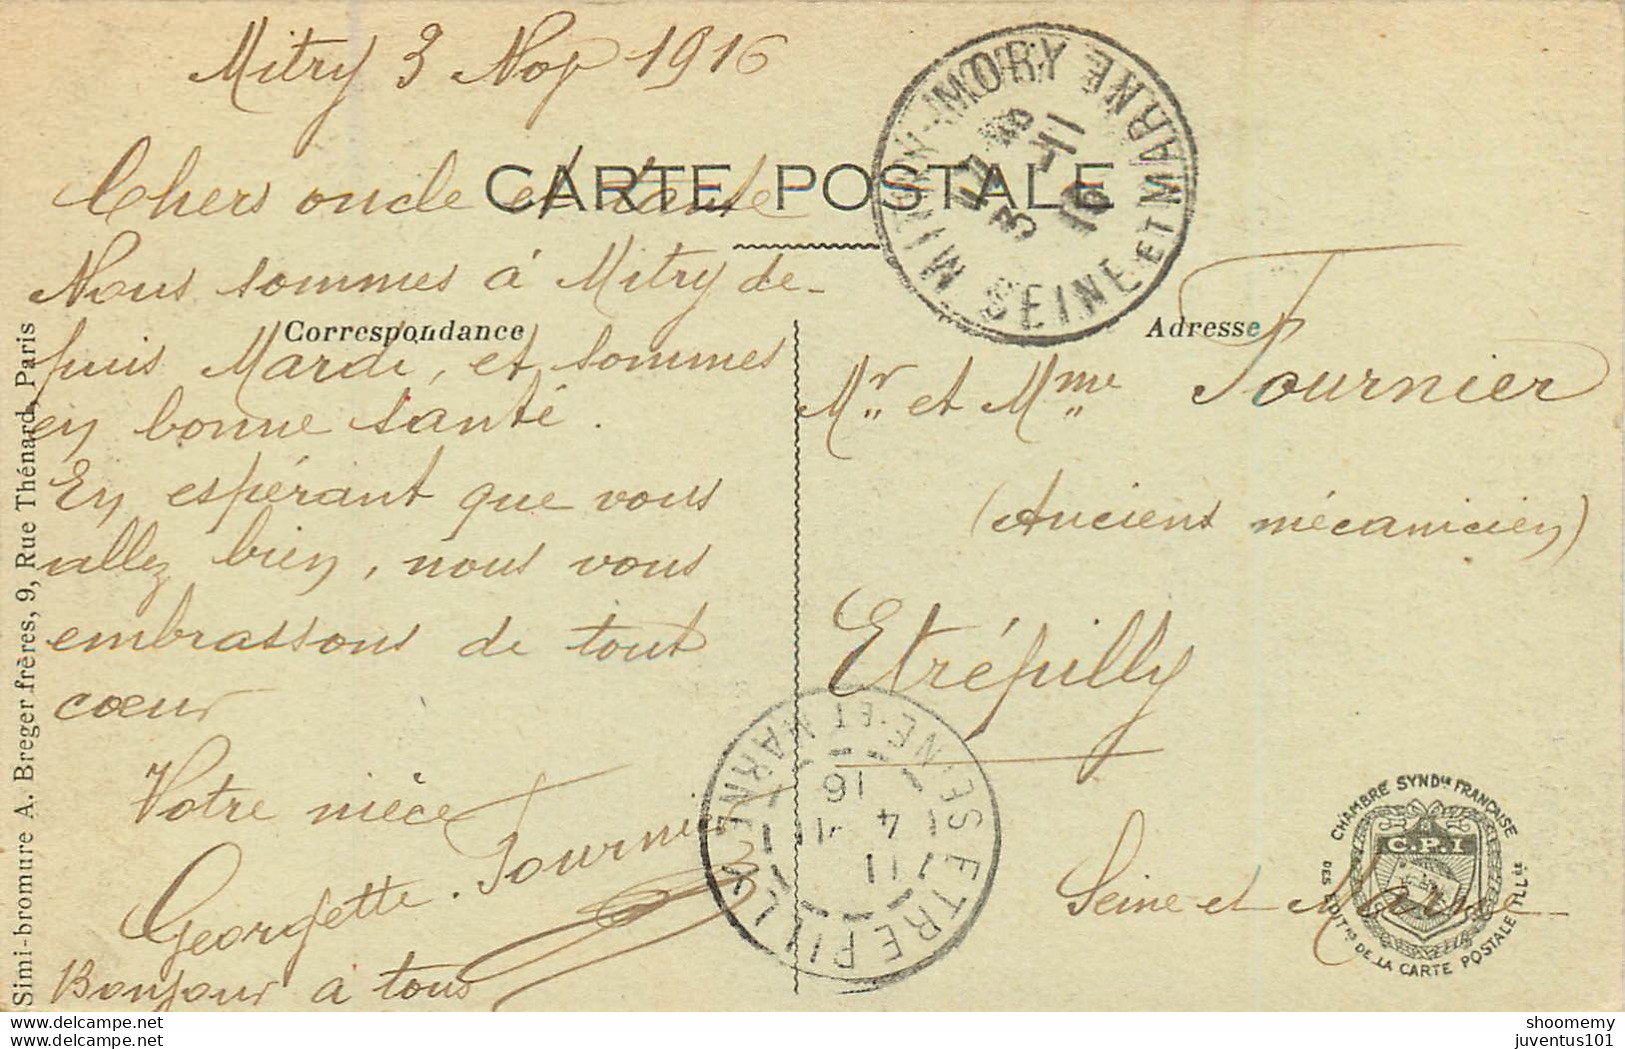 Mitry 3 Nov 1916
CARTE POSTALE
Chers oncle et tante
Nous sommes à Mitry de-
puis Mardi, et sommes
en bonne santé.
En espérant que vous
allez bien, nous vous
embrassons de tout
cœur
Votre nièce
Georgette. Fournier
Bonjour a tous
Correspondance
Adresse
Mr et Mme Fournier
(Ancient mécanicien)
Etrépilly
Seine et Marne
MITRY-MORY SEINE-ET-MARNE
3 -11
16
ETREPILLY SEINE-ET-MARNE
11
4 11
16
CHAMBRE SYNDle FRANÇAISE
C.P.I
DES EDITrs DE LA CARTE POSTALE ILLée
Simi-bromure A. Breger frères, 9, Rue Thénard, Paris
www.delcampe.net
shoomemy
juventus101